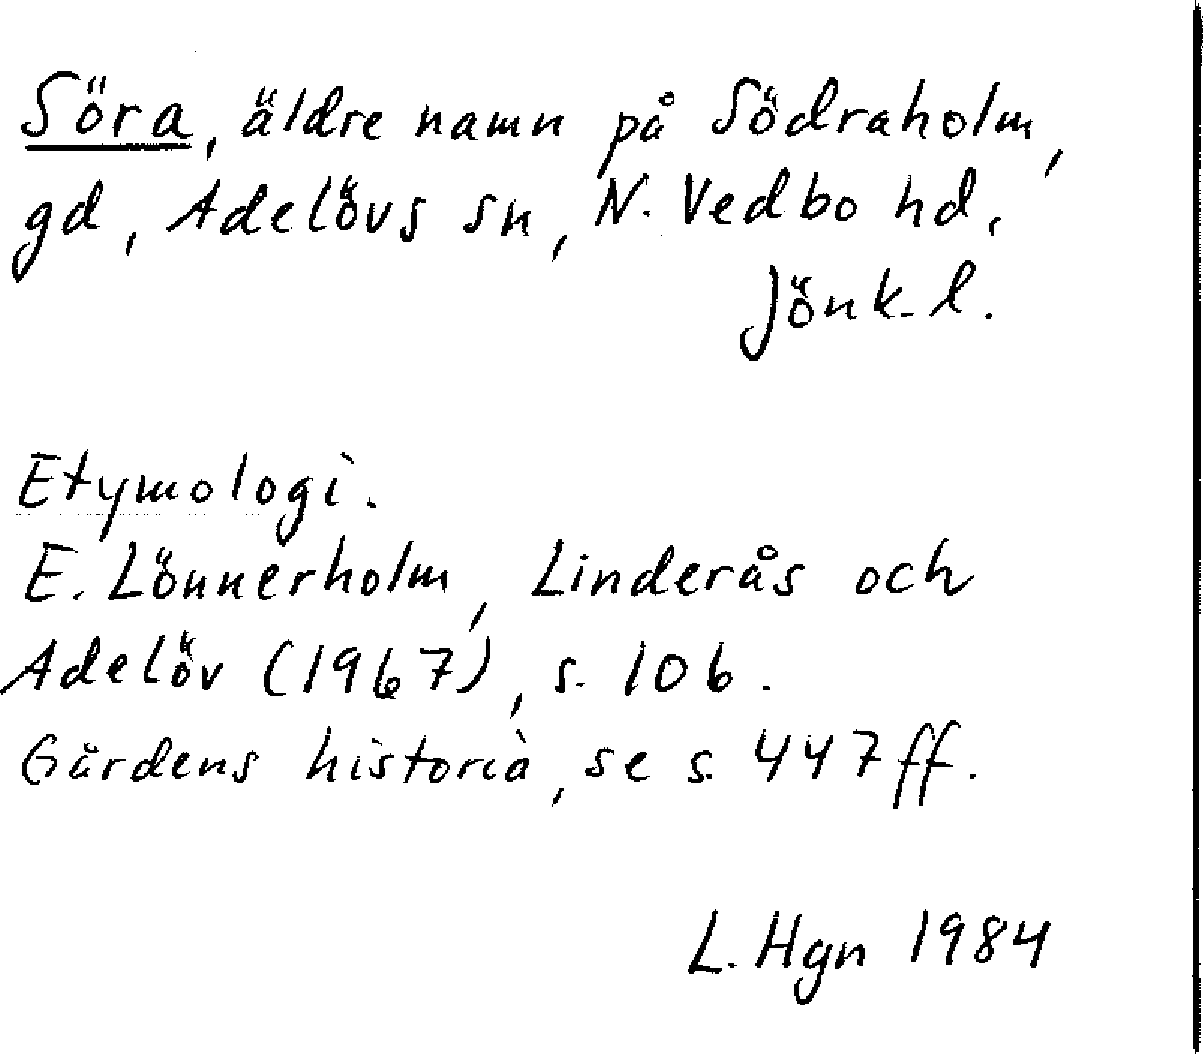 Söra, äldre namn på Södraholm,
gd, Adelövs sn, N. Vedbo hd.
Jönk. l.
Etymologi.
E. Lönnerholm, Linderås och
Adelöv (1967), s. 106.
Gårdens historia, se s. 447 ff.
L. Hgn 1984